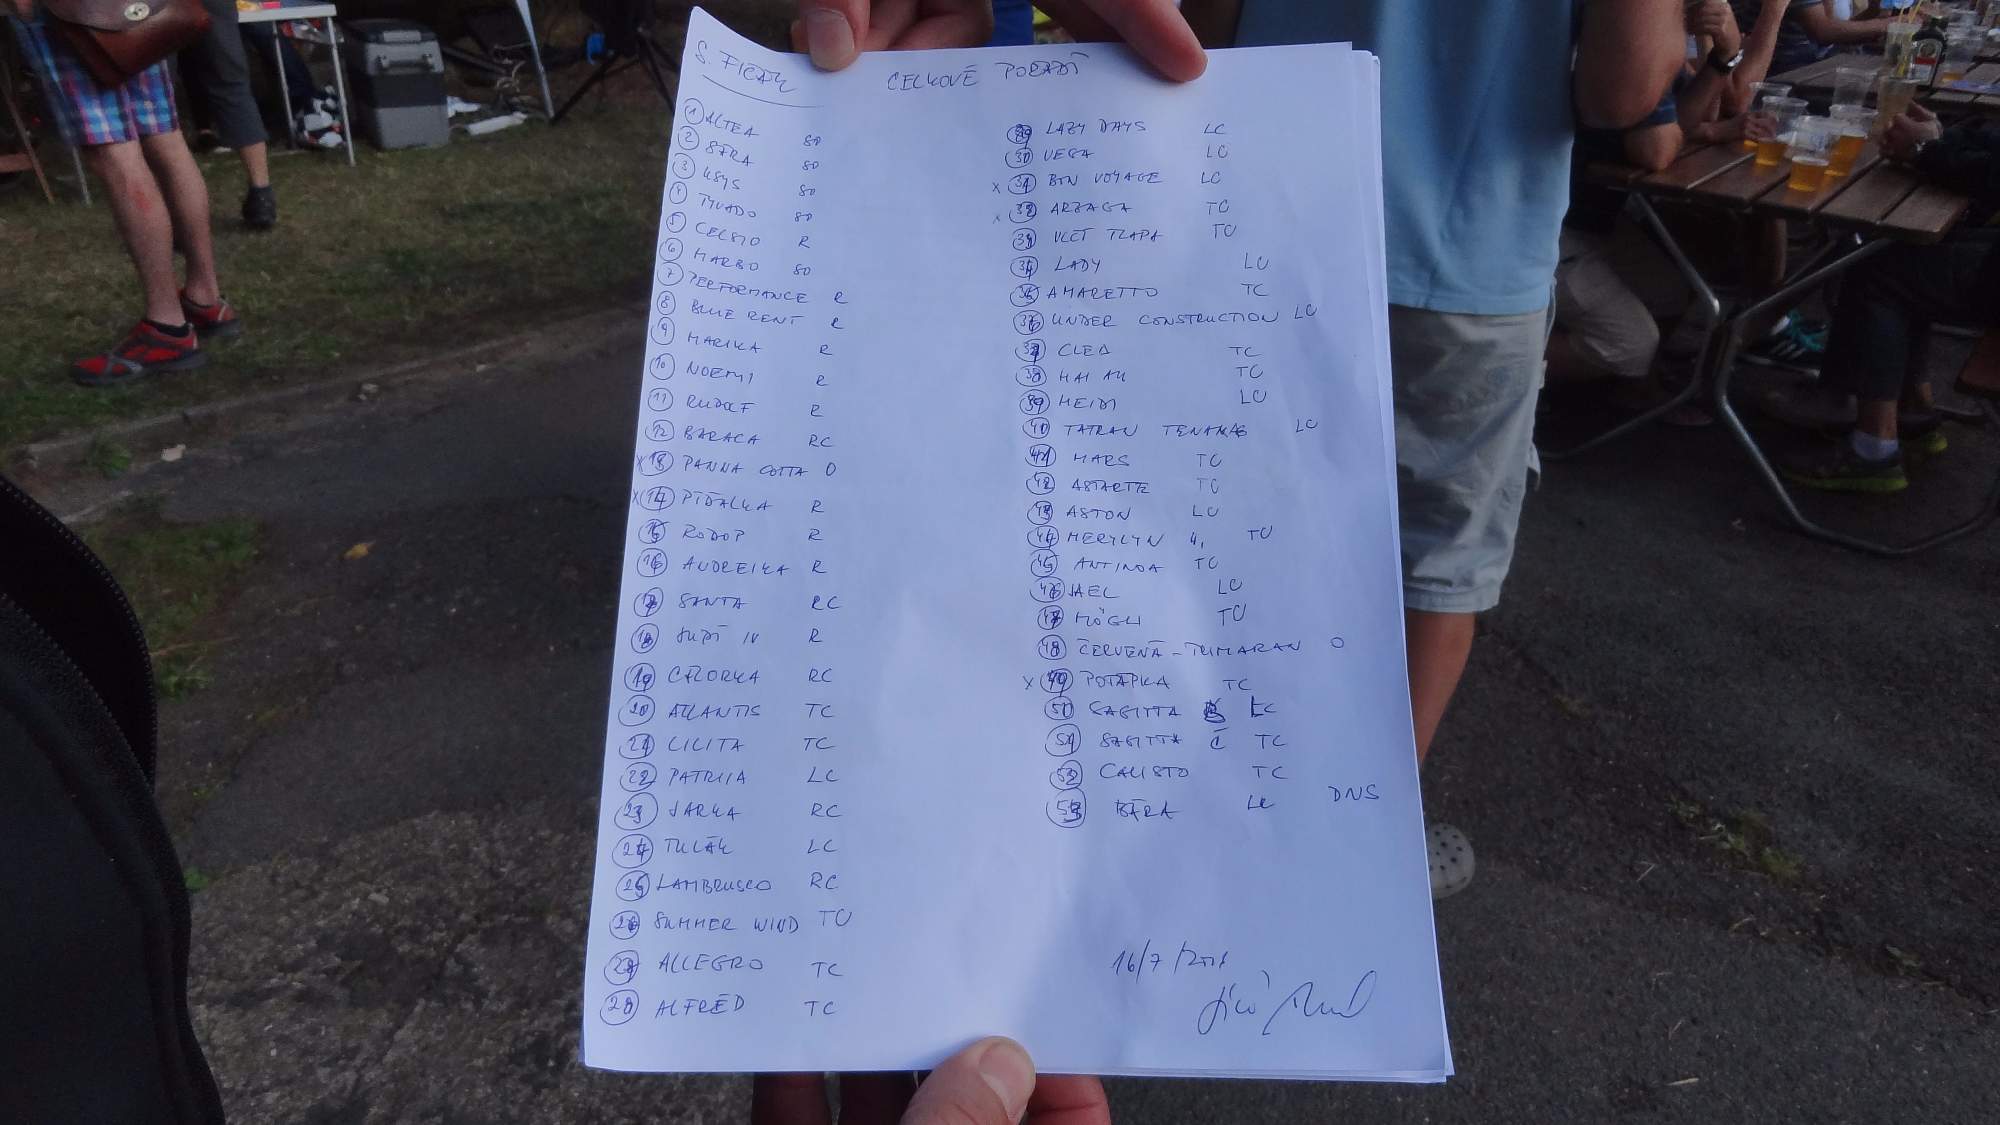 CELKOVÉ POŘADÍ
1 ALTEA 80
2 80
3 80
4 80
5 CELSIO R
6 MARBO 80
7 PERFORMANCE R
8 BLUE RENT R
9 MARIKA R
10 NOEMI R
11 RUDOLF R
12 BARACA RC
x 13 PANNA COTTA O
x 14 PIĎALKA R
15 RODOP R
16 ANDREIKA R
17 SANTA RC
18 SUPÍ IV R
19 RC
20 ATLANTIS TC
21 LILITA TC
22 LC
23 JARKA RC
24 TULÁK LC
25 LAMBRUSCO RC
26 SUMMER WIND TC
27 ALLEGRO TC
28 ALFRÉD TC
29 LAZY DAYS LC
30 VEGA LC
x 31 BON VOYAGE LC
x 32 ARZAGA TC
33 VLČÍ TLAPA TC
34 LADY LC
35 AMARETTO TC
36 UNDER CONSTRUCTION LC
37 CLEO TC
38 HAI AU TC
39 HEIDI LC
40 TATRAN LC
41 MARS TC
42 ASTARTE TC
43 ASTON LC
44 MERYLYN TC
45 ANTINOA TC
46 JAEL LC
47 TC
48 ČERVENÁ - TRIMARAN O
x 49 POTÁPKA TC
50 SAGITTA LC
51 SAGITTA Č TC
52 CALISTO TC
53 BÁRA LC DNS